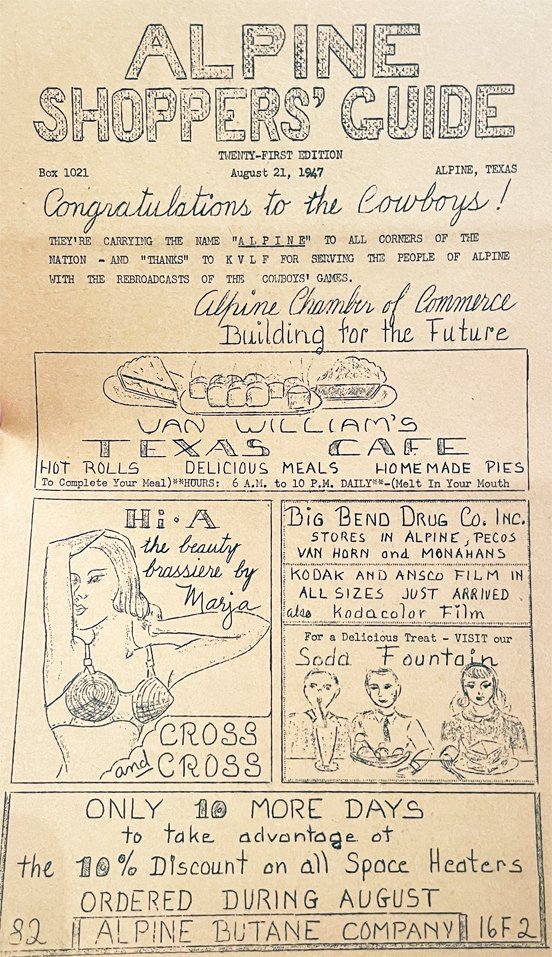 ALPINE
SHOPPERS' GUIDE
TWENTY-FIRST EDITION
Box 1021 August 21, 1947 ALPINE, TEXAS
Congratulations to the Cowboys!
THEY'RE CARRYING THE NAME "ALPINE" TO ALL CORNERS OF THE
NATION - AND "THANKS" TO KVLF FOR SERVING THE PEOPLE OF ALPINE
WITH THE REBROADCASTS OF THE COWBOYS' GAMES.
Alpine Chamber of Commerce
Building for the Future
VAN WILLIAM'S
TEXAS CAFE
HOT ROLLS DELICIOUS MEALS HOMEMADE PIES
To Complete Your Meal)**HOURS: 6 A.M. to 10 P.M. DAILY**-(Melt In Your Mouth
Hi·A
the beauty
brassiere by
Marja
CROSS
and CROSS
BIG BEND DRUG CO. INC.
STORES IN ALPINE, PECOS
VAN HORN and MONAHANS
KODAK AND ANSCO FILM IN
ALL SIZES JUST ARRIVED
also Kodacolor Film
For a Delicious Treat - VISIT our
Soda Fountain
ONLY 10 MORE DAYS
to take advantage of
the 10% Discount on all Space Heaters
ORDERED DURING AUGUST
82 ALPINE BUTANE COMPANY 16F2